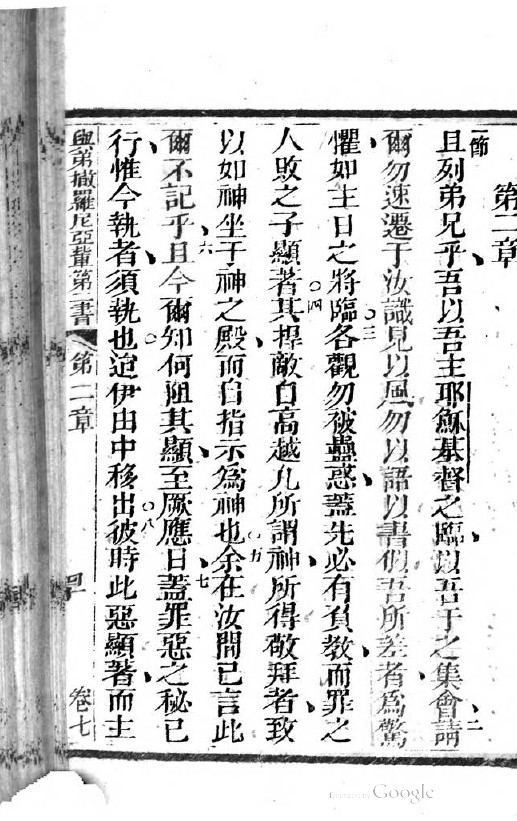 第二章
一節
且列弟兄乎吾以吾主耶穌基督之臨以吾于之集會請二
爾勿速遷于汝識見以風勿以語以書似吾所差者為驚
懼如主日之將臨○三各觀勿被蠱惑蓋先必有負教而罪之
人敗之子顯著○四其捍敵自高越凡所謂神所得敬拜者致
以如神坐于神之殿而自指示為神也○五余在汝間已言此
爾不記乎六且今爾知何阻其顯至厥應日七蓋罪惡之秘已
行惟今執者須執也○迨伊由中移出○八彼時此惡顯著而主
與弟撒羅尼亞輩第二書
第二章
卷七
Google